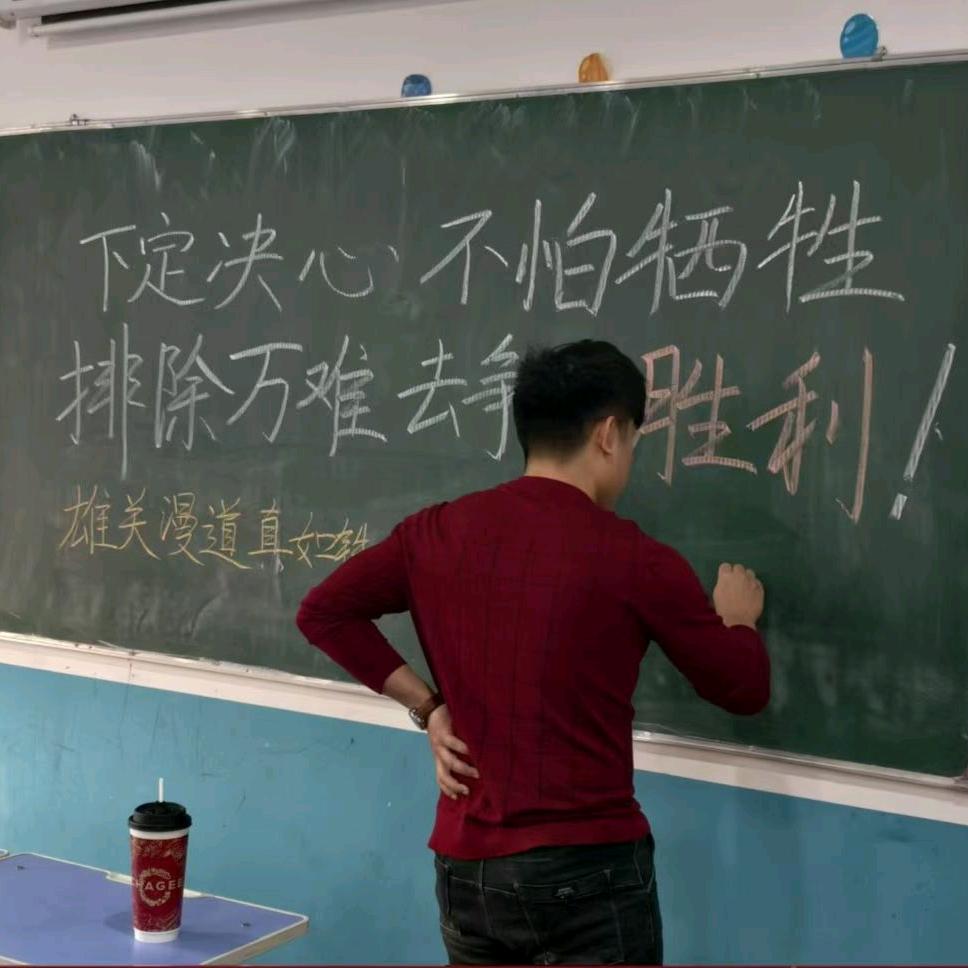 下定决心 不怕牺牲
排除万难 去争 胜利!
雄关漫道真如铁
CHAGEE